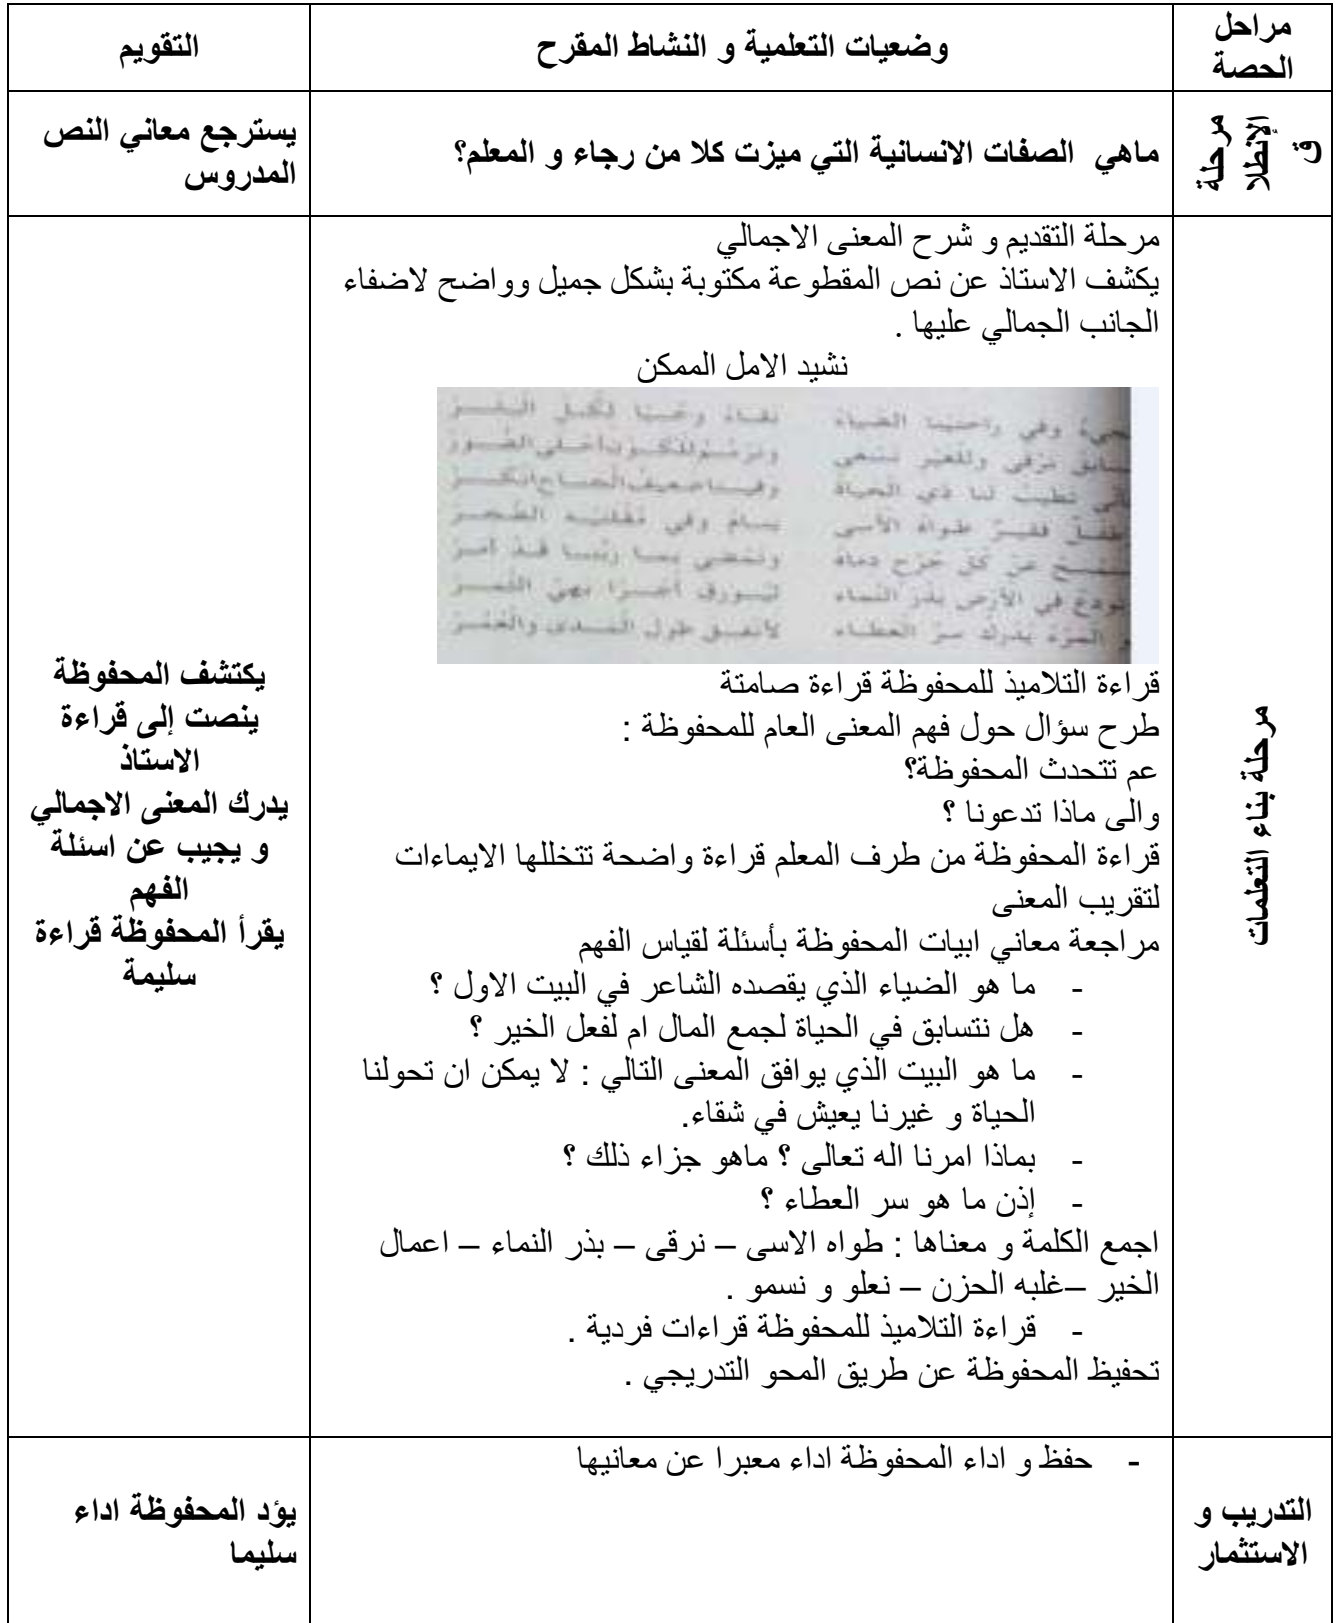 مراحل
الحصة
وضعيات التعلمية و النشاط المقرح
التقويم
مرحلة
الإنطلا
ق
ماهي الصفات الانسانية التي ميزت كلا من رجاء و المعلم؟
يسترجع معاني النص
المدروس
مرحلة بناء التعلمات
مرحلة التقديم و شرح المعنى الاجمالي
يكشف الاستاذ عن نص المقطوعة مكتوبة بشكل جميل وواضح لاضفاء
الجانب الجمالي عليها .
نشيد الامل الممكن
وفي راحتينا الضياء
نرقى وللخير نسعى
تطيب لنا ذي الحياة
فقير طواه الأسى
عن كل جرح دماه
في الأرض بذر النماء
المرء يدرك سر العطاء
قراءة التلاميذ للمحفوظة قراءة صامتة
طرح سؤال حول فهم المعنى العام للمحفوظة :
عم تتحدث المحفوظة؟
والى ماذا تدعونا ؟
قراءة المحفوظة من طرف المعلم قراءة واضحة تتخللها الايماءات
لتقريب المعنى
مراجعة معاني ابيات المحفوظة بأسئلة لقياس الفهم
- ما هو الضياء الذي يقصده الشاعر في البيت الاول ؟
- هل نتسابق في الحياة لجمع المال ام لفعل الخير ؟
- ما هو البيت الذي يوافق المعنى التالي : لا يمكن ان تحولنا
الحياة و غيرنا يعيش في شقاء.
- بماذا امرنا اله تعالى ؟ ماهو جزاء ذلك ؟
- إذن ما هو سر العطاء ؟
اجمع الكلمة و معناها : طواه الاسى – نرقى – بذر النماء – اعمال
الخير –غلبه الحزن – نعلو و نسمو .
- قراءة التلاميذ للمحفوظة قراءات فردية .
تحفيظ المحفوظة عن طريق المحو التدريجي .
يكتشف المحفوظة
ينصت إلى قراءة
الاستاذ
يدرك المعنى الاجمالي
و يجيب عن اسئلة
الفهم
يقرأ المحفوظة قراءة
سليمة
التدريب و
الاستثمار
- حفظ و اداء المحفوظة اداء معبرا عن معانيها
يؤد المحفوظة اداء
سليما